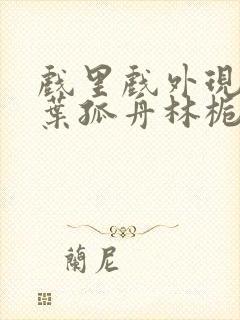 戲里戲外現
葉孤舟林栀
蘭尼